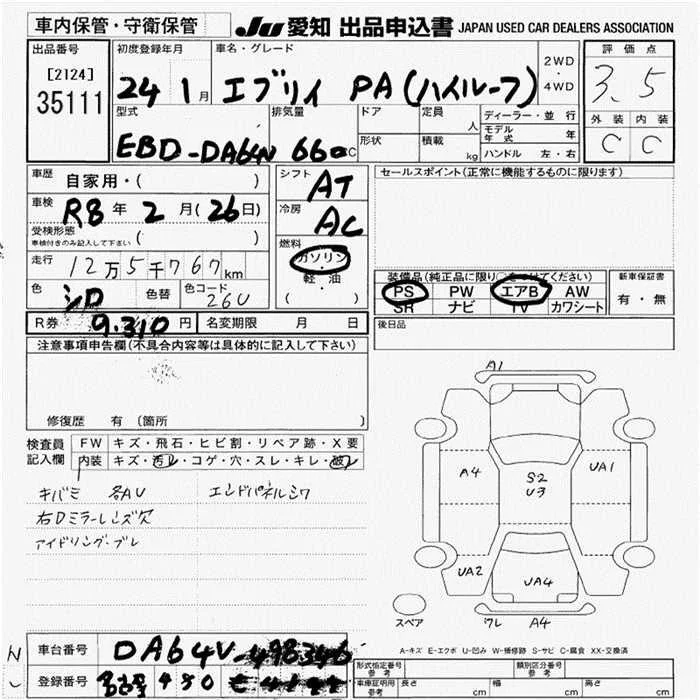 車内保管・守衛保管
JU 愛知 出品申込書 JAPAN USED CAR DEALERS ASSOCIATION
出品番号 初度登録年月 車名・グレード 2WD・4WD 評価点
[2124]
35111 24 1月 エブリイ PA(ハイルーフ) 3.5
型式 排気量 ドア 定員 人 ディーラー・並行 外装 内装
EBD-DA64V 660 CC 形状 積載 kg モデル年式 年 C C
ハンドル 左・右
車歴 自家用・( ) シフト AT セールスポイント(正常に機能するものに限ります)
車検 R8年2月(26日) 冷房 AC
受検形態 ( )
車検付きのみ記入して下さい
燃料 ガソリン・軽・油・( )
走行 12万5千767km
装備品(純正品に限り○をつけてください) 新車保証書
PS PW エアB AW 有・無
SR ナビ TV カワシート
色 シロ 色替 色コード 26U
R券 9.310円 名変期限 月 日 後日品
注意事項申告欄(不具合内容等は具体的に記入して下さい)
修復歴 有 〔箇所 〕
検査員記入欄 FW キズ・飛石・ヒビ割・リペア跡・X要
内装 キズ・汚レ・コゲ・穴・スレ・キレ・破レ
キバミ 各AU エンドパネルシワ
右Dミラーレンズ欠
アイドリング・ブレ
A1
A4 S2 UA1
U3
UA2 UA4
スペア ワレ A4
A-キズ E-エクボ U-凹み W-補修跡 S-サビ C-腐食 XX-交換済
車台番号 DA64V-498346
登録番号 名古屋 480
形式指定番号 参考 類別区分番号 参考
車庫証明用 参考 長さ cm 幅 cm 高さ cm